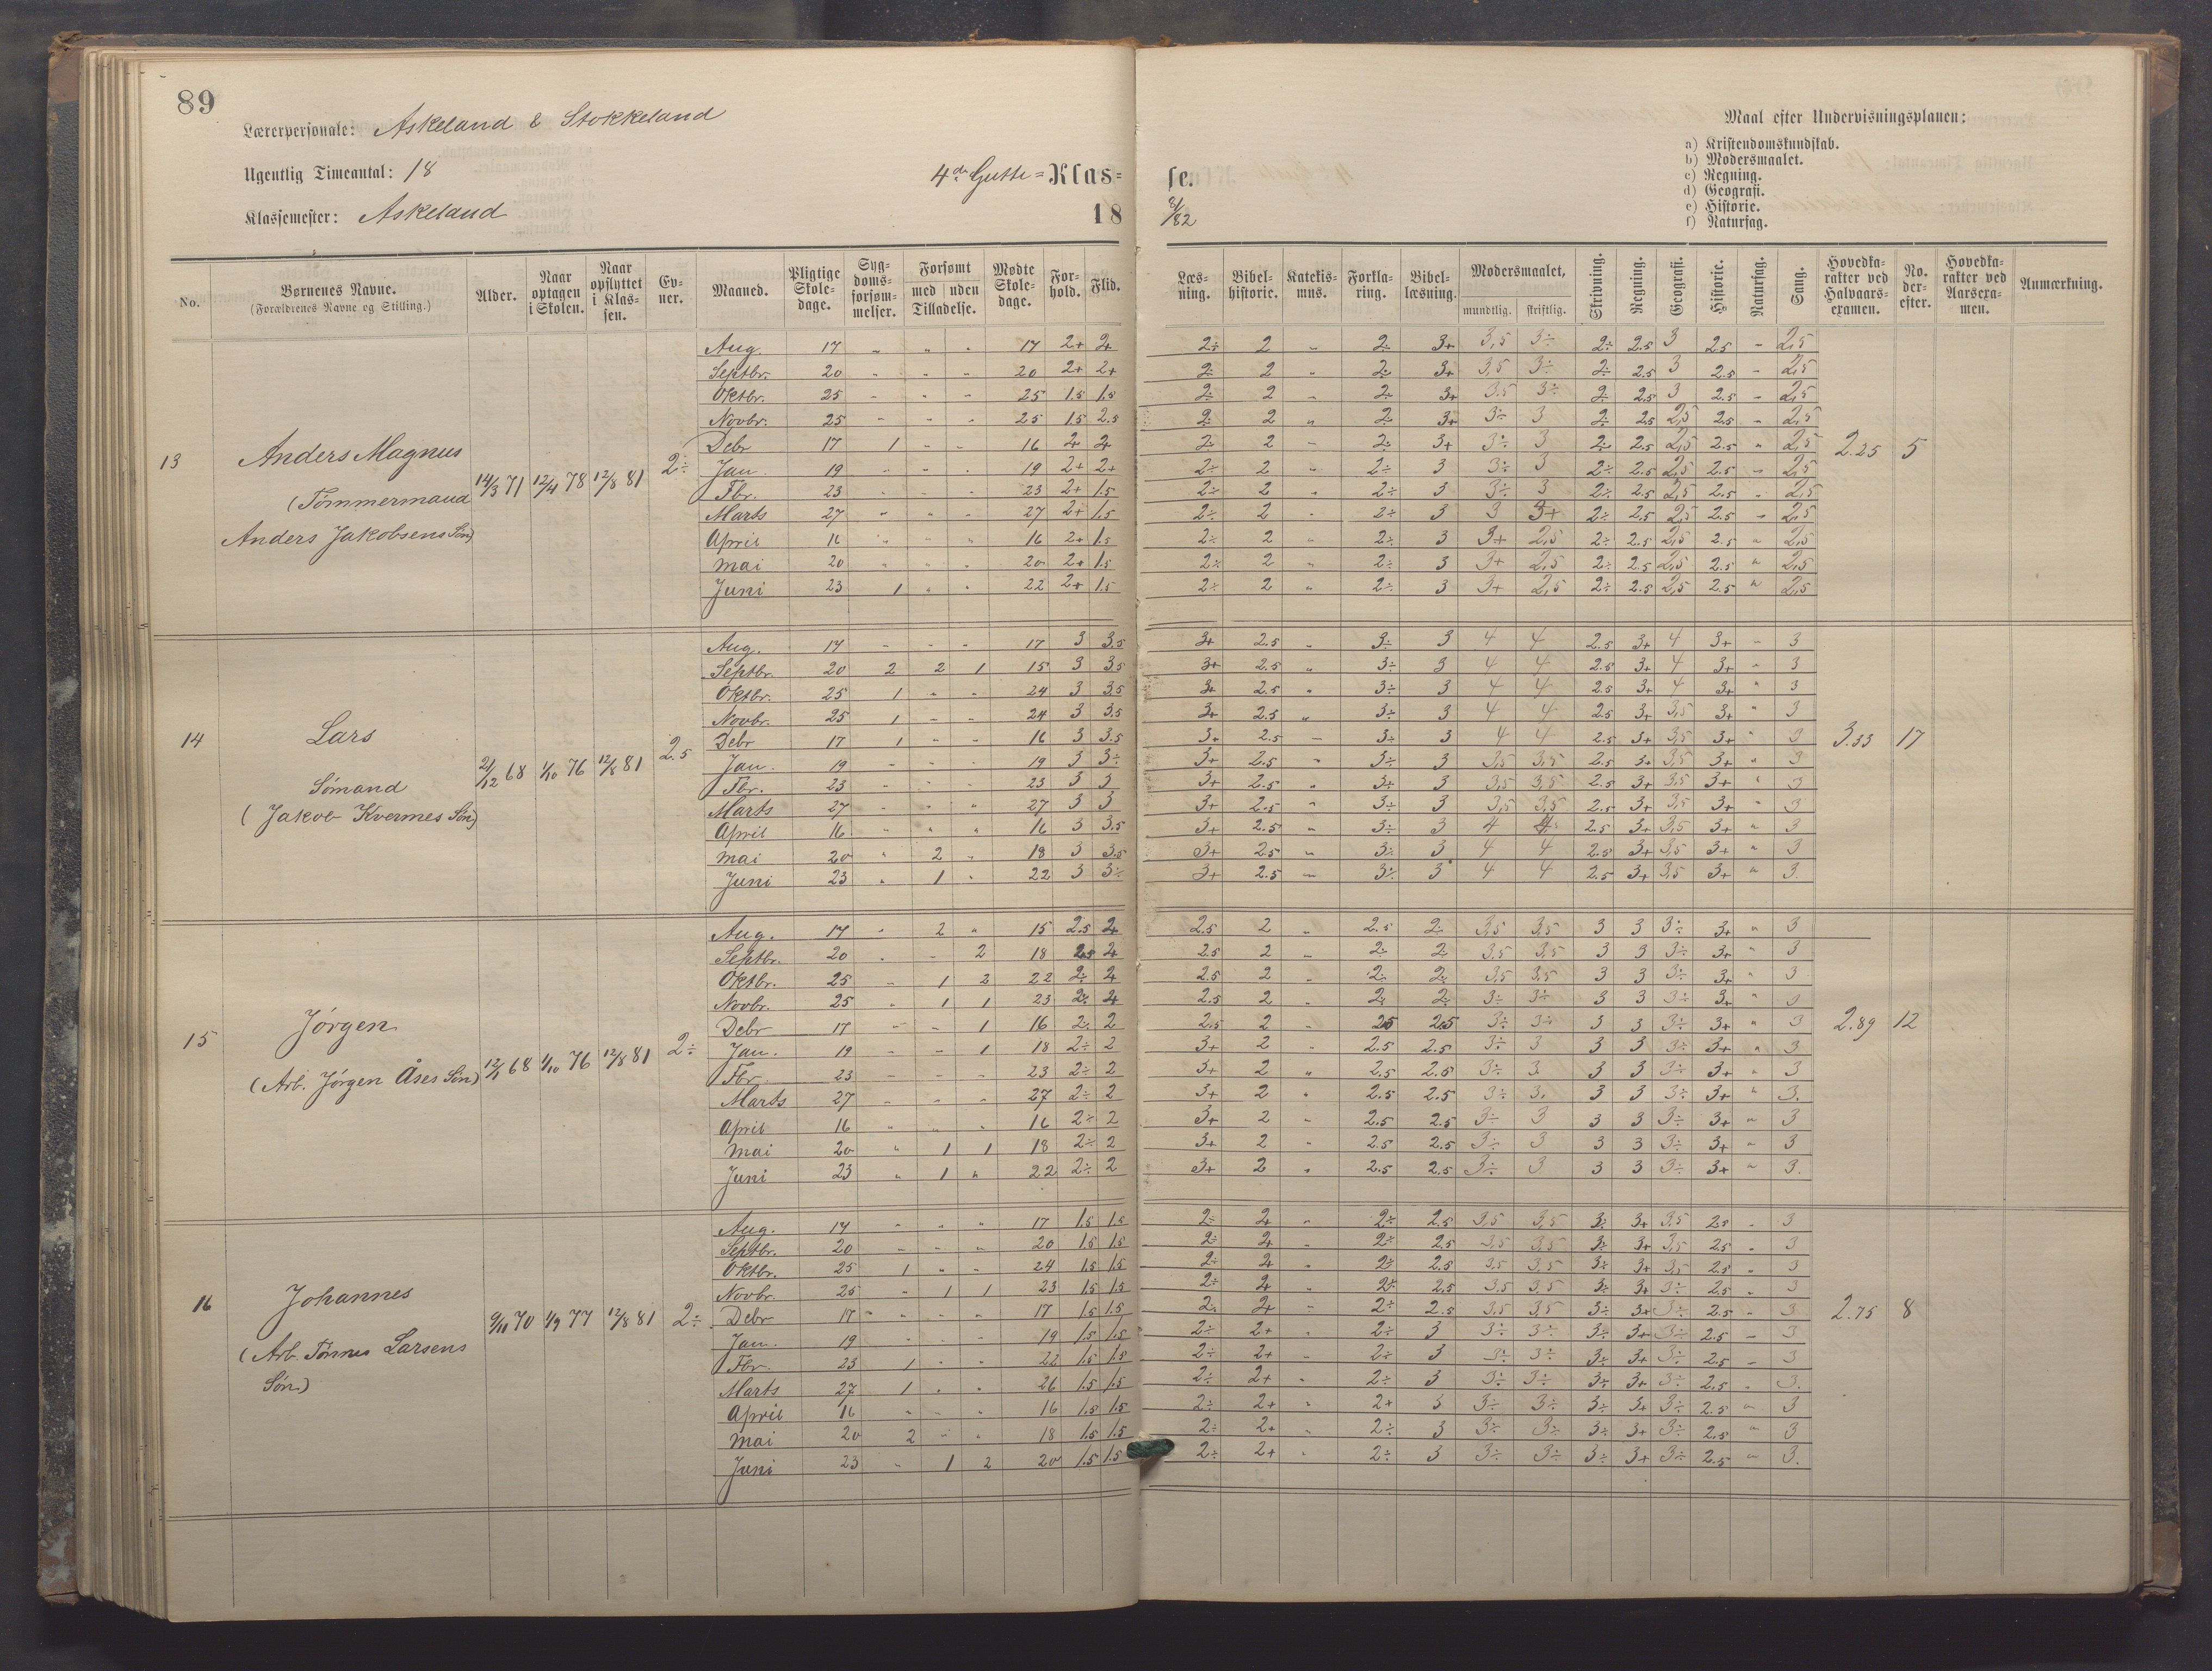 89
Lærerpersonale: Askeland & Stokkeland
Ugentlig Timeantal: 18
4de Gutte = Klas=
se.
Klassemester: Askeland
18 81/82
Maal efter Undervisningsplanen:
a) Kristendomskundskab.
b) Modersmaalet.
c) Regning.
d) Geografi.
e) Historie.
f) Naturfag.
No. | Børnenes Navne. (Forældrenes Navne og Stilling.) | Alder. | Naar optagen i Skolen. | Naar opflyttet i Klassen. | Evner. | Maaned. | Pligtige Skoledage. | Sygdomsforsømmelser. | Forsømt med Tilladelse. | uden Tilladelse. | Mødte Skoledage. | Forhold. | Flid. | Læsning. | Bibelhistorie. | Katekismus. | Forklaring. | Bibellæsning. | Modersmaalet, mundtlig. | skriftlig. | Skrivning. | Regning. | Geografi. | Historie. | Naturfag. | Sang. | Hovedkarakter ved Halvaarsexamen. | No. derefter. | Hovedkarakter ved Aarsexamen. | Anmærkning.
13 Anders Magnus
(Tømmermand
Anders Jakobsens Søn)
14/3 71 12/4 78 12/8 81 2÷
Aug. 17 " " " 17 2+ 2+ 2÷ 2 " 2÷ 3+ 3,5 3÷ 2÷ 2.5 3 2.5 " 2,5
Septbr. 20 " " " 20 2+ 2+ 2÷ 2 " 2÷ 3+ 3,5 3÷ 2÷ 2.5 3 2.5 " 2,5
Oktbr. 25 " " " 25 1.5 1.5 2÷ 2 " 2÷ 3+ 3,5 3÷ 2÷ 2.5 3 2.5 " 2,5
Novbr. 25 " " " 25 1.5 2.5 2÷ 2 " 2÷ 3+ 3÷ 3 2÷ 2.5 2,5 2.5 " 2,5
Debr 17 1 " " 16 2+ 2+ 2÷ 2 " 2÷ 3+ 3÷ 3 2÷ 2.5 2,5 2.5 " 2,5
Jan. 19 " " " 19 2+ 2+ 2÷ 2 " 2÷ 3 3÷ 3 2÷ 2.5 2,5 2.5 " 2,5
Fbr. 23 " " " 23 2+ 1.5 2÷ 2 " 2÷ 3 3÷ 3 2÷ 2.5 2,5 2.5 " 2,5
Marts 27 " " " 27 2+ 1.5 2÷ 2 " 2÷ 3 3 3+ 2÷ 2.5 2,5 2.5 " 2,5
April 16 " " " 16 2+ 1.5 2÷ 2 " 2÷ 3 3+ 2,5 2÷ 2.5 2,5 2.5 " 2,5
Mai 20 " " " 20 2+ 1.5 2÷ 2 " 2÷ 3 3+ 2,5 2÷ 2.5 2,5 2.5 " 2,5
Juni 23 1 " " 22 2+ 1.5 2÷ 2 " 2÷ 3 3+ 2,5 2÷ 2.5 2,5 2.5 " 2,5
2.25 5
14 Lars
Sømand
(Jakob Kvermes Søn)
21/12 68 1/10 76 12/8 81 2.5
Aug. 17 " " " 17 3 3.5 3+ 2.5 " 3÷ 3 4 4 2.5 3+ 4 3+ " 3
Septbr. 20 2 2 1 15 3 3.5 3+ 2.5 " 3÷ 3 4 4 2.5 3+ 4 3+ " 3
Oktbr. 25 1 " " 24 3 3.5 3+ 2.5 " 3÷ 3 4 4 2.5 3+ 4 3+ " 3
Novbr. 25 1 " " 24 3 3.5 3+ 2.5 " 3÷ 3 4 4 2.5 3+ 3,5 3+ " 3
Debr 17 1 " " 16 3 3.5 3+ 2.5 " 3÷ 3 4 4 2.5 3+ 3,5 3+ " 3
Jan. 19 " " " 19 3 3÷ 3+ 2.5 " 3÷ 3 3,5 3,5 2.5 3+ 3,5 3+ " 3
Fbr. 23 " " " 23 3 3 3+ 2.5 " 3÷ 3 3,5 3,5 2.5 3+ 3,5 3+ " 3
Marts 27 " " " 27 3 3 3+ 2.5 " 3÷ 3 3,5 3,5 2.5 3+ 3,5 3+ " 3
April 16 " " " 16 3 3.5 3+ 2.5 " 3÷ 3 4 4 2.5 3+ 3,5 3+ " 3
Mai 20 " 2 " 18 3 3.5 3+ 2.5 " 3÷ 3 4 4 2.5 3+ 3,5 3+ " 3
Juni 23 " 1 " 22 3 3÷ 3+ 2.5 " 3÷ 3 4 4 2.5 3+ 3,5 3+ " 3.
3.33 17
15 Jørgen
(Arb. Jørgen Åses Søn)
68 1/10 76 12/8 81 2÷
Aug. 17 " 2 " 15 2.5 2+ 2.5 2 " 2.5 2÷ 3,5 3,5 3 3 3÷ 3+ " 3
Septbr. 20 " " 2 18 2.5 2+ 2.5 2 " 2÷ 2÷ 3,5 3,5 3 3 3÷ 3+ " 3
Oktbr. 25 " 1 2 22 2÷ 2+ 2.5 2 " 2÷ 2÷ 3,5 3,5 3 3 3÷ 3+ " 3
Novbr. 25 " 1 1 23 2÷ 2+ 2.5 2 " 2÷ 2÷ 3÷ 3÷ 3 3 3÷ 3+ " 3
Debr 17 " " 1 16 2÷ 2 2.5 2 " 2.5 2.5 3÷ 3÷ 3 3 3÷ 3+ " 3
Jan. 19 " " 1 18 2÷ 2 3+ 2 " 2.5 2.5 3÷ 3 3 3 3÷ 3+ " 3
Fbr. 23 " " " 23 2÷ 2 3+ 2 " 2.5 2.5 3÷ 3 3 3 3÷ 3+ " 3
Marts 27 " " " 27 2÷ 2 3+ 2 " 2.5 2.5 3÷ 3 3 3 3÷ 3+ " 3.
April 16 " " " 16 2÷ 2 3+ 2 " 2.5 2.5 3÷ 3 3 3 3÷ 3+ " 3
Mai 20 " 1 1 18 2÷ 2 3+ 2 " 2.5 2.5 3÷ 3 3 3 3÷ 3+ " 3
Juni 23 " 1 " 22 2÷ 2 3+ 2 " 2.5 2.5 3÷ 3 3 3 3÷ 3+ " 3.
2.89 12
16 Johannes
(Arb. Tønnes Larsens
Søn)
9/11 70 1/9 77 12/8 81 2÷
Aug. 17 " " " 17 1.5 1.5 2÷ 2+ " 2÷ 2.5 3,5 3,5 3÷ 3+ 3,5 2.5 " 3
Septbr. 20 " " " 20 1.5 1.5 2÷ 2+ " 2÷ 2.5 3,5 3,5 3÷ 3+ 3,5 2.5 " 3
Oktbr. 25 1 " " 24 1.5 1.5 2÷ 2+ " 2÷ 2.5 3,5 3,5 3÷ 3+ 3,5 2.5 " 3
Novbr. 25 " 1 1 23 1.5 1.5 2÷ 2+ " 2÷ 2.5 3,5 3,5 3÷ 3+ 3÷ 2.5 " 3
Debr 17 " " " 17 1.5 1.5 2÷ 2+ " 2÷ 2.5 3,5 3,5 3÷ 3+ 3÷ 2.5 " 3
Jan. 19 " " " 19 1.5 1.5 2÷ 2+ " 2÷ 3 3÷ 3÷ 3÷ 3+ 3÷ 2.5 " 3
Fbr. 23 1 " " 22 1.5 1.5 2÷ 2+ " 2÷ 3 3÷ 3÷ 3÷ 3+ 3÷ 2.5 " 3
Marts 27 1 " " 26 1.5 1.5 2÷ 2+ " 2÷ 3 3÷ 3÷ 3÷ 3+ 3÷ 2.5 " 3.
April 16 " " " 16 1.5 1.5 2÷ 2+ " 2+ 3 3÷ 3÷ 3÷ 3+ 3÷ 2.5 " 3
Mai 20 2 " " 18 1.5 1.5 2÷ 2+ " 2÷ 3 3÷ 3÷ 3÷ 3+ 3÷ 2.5 " 3
Juni 23 " 1 2 20 1.5 1.5 2÷ 2+ " 2÷ 3 3÷ 3÷ 3÷ 3+ 3÷ 2.5 " 3.
2.75 8